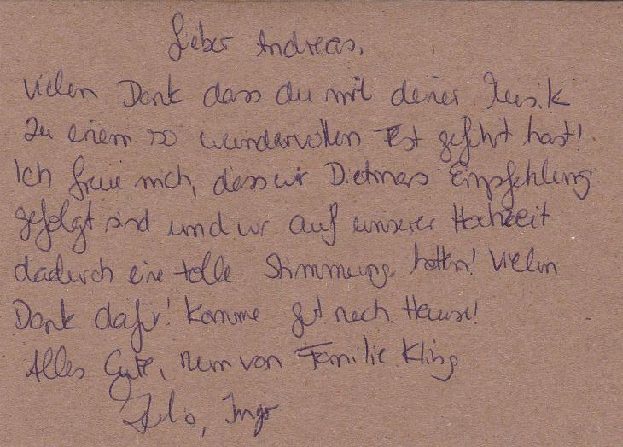 Lieber Andreas,
Vielen Dank dass du mit deiner Musik
zu einem so wundervollen Fest geführt hast!
Ich freue mich, dass wir Dietmars Empfehlung
gefolgt sind und wir auf unserer Hochzeit
dadurch eine tolle Stimmung hatten! Vielen
Dank dafür! Komme gut nach Hause!
Alles Gute, von Familie Kling
Ingo